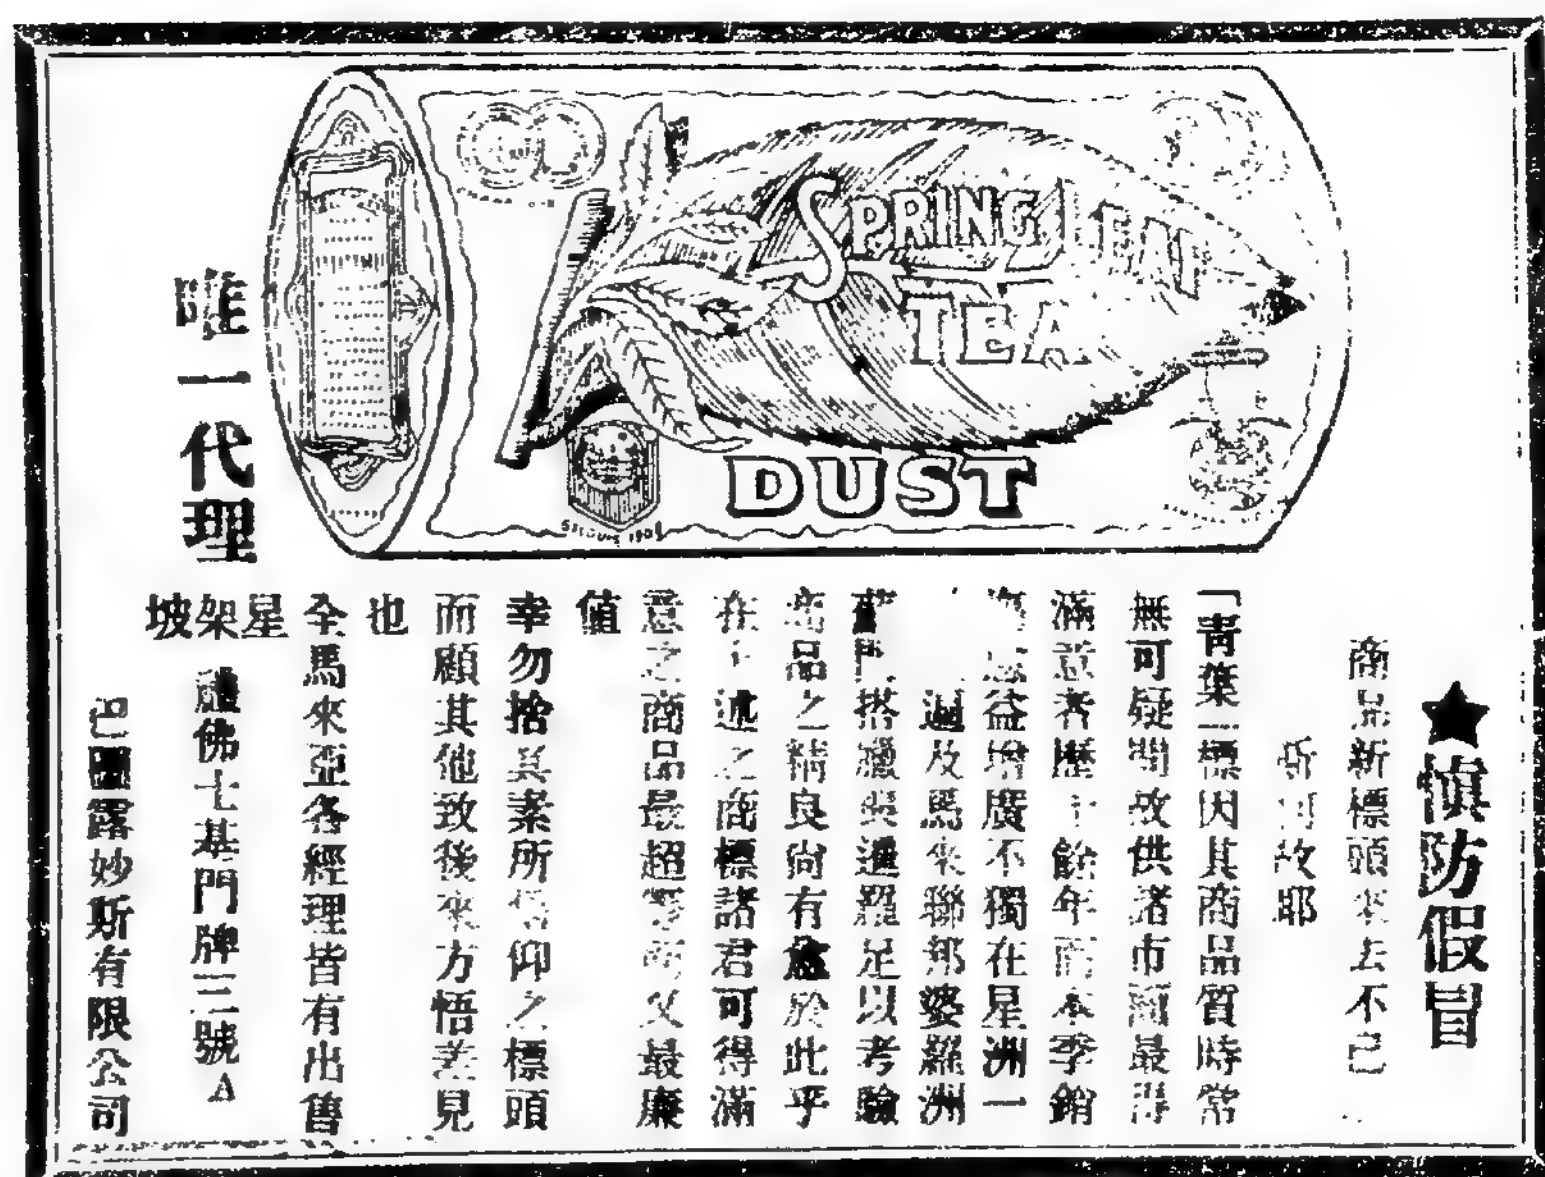 SPRING LEAF
TEA
DUST
ST LOUIS 1904
★慎防假冒
商品新標頭來去不已
斯何故耶
「青葉」標因其商品質時常
無可疑問故供諸市而最得
滿意者歷十餘年而本季銷
益增廣不獨在星洲一
遍及馬來聯邦婆羅洲
門搭臘與暹羅足以考驗
商品之精良尚有愈於此乎
在上述之商標諸君可得滿
意之商品最超等而又最廉
值
幸勿捨其素所信仰之標頭
而顧其他致後來方悟差見
也
全馬來亞各經理皆有出售
唯一代理
星架坡
禮佛士基門牌三號A
巴圖露妙斯有限公司